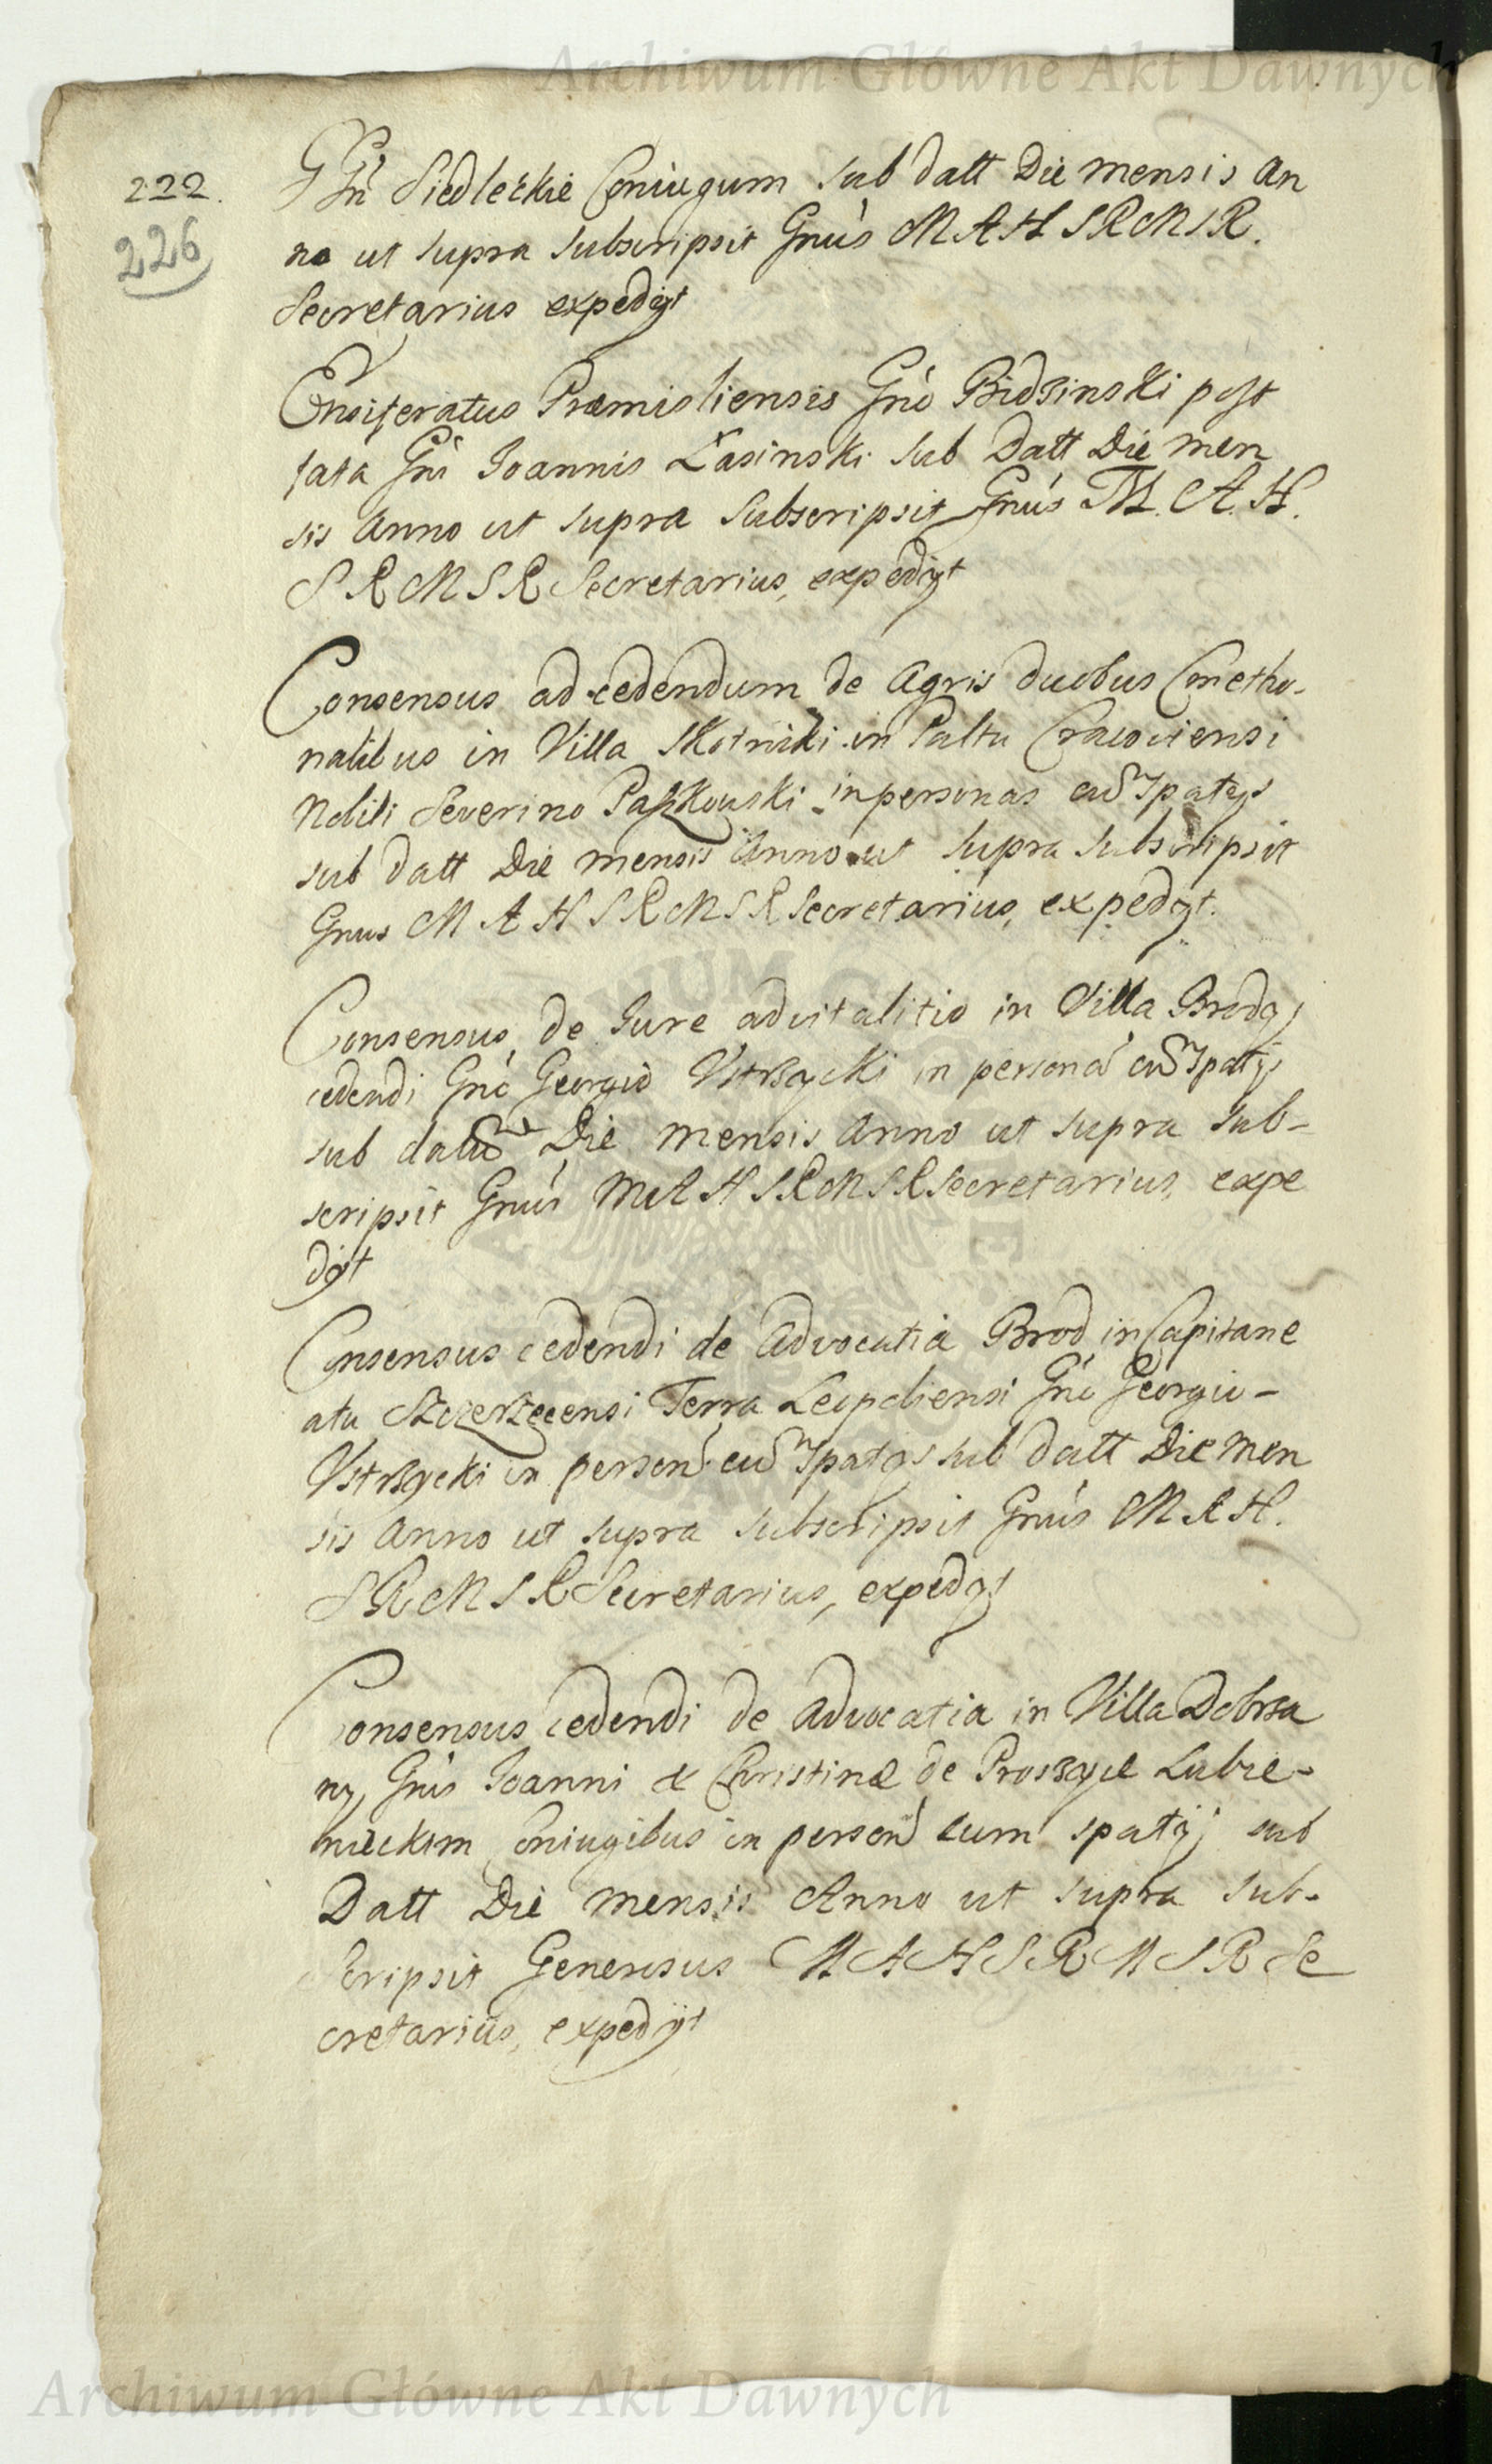 Archiwum Główne Akt Dawnych
222.
226
GGn Siedleckie Coniugum sub datt Die mensis An
no ut supra subscripsit Gnus M A H S R M S R.
Secretarius expedijt
Ensiferatus Præmisliensis Gno Bidzinski post
fata Gni Joannis Łasinski sub Datt Die men
sis Anno ut supra Subscripsit Gnus M. A. H.
S R M S R Secretarius, expedijt
Consensus ad cedendum de Agris duobus Cmetho-
nalibus in Villa Skotniki in Palttu Cracoviensi
Nobili Severino Paszkowski in personas cu Spatijs
sub datt Die mensis Anno ut supra subscripsit
Gnus M A H S R M S R Secretarius, expedijt.
Consensus de Jure advitalitio in Villa Brody
cedendi Gno Georgio Ustrzycki in persona cu Spatijs
sub datt Die mensis Anno ut supra sub-
scripsit Gnus M A H S R M S R Secretarius, expe
dijt
Consensus cedendi de Advocatia Brod in Capitane
atu Szczerzecensi Terra Leopoliensi Gno Georgio-
Ustrzycki in person cu Spatijs sub datt Die men
sis Anno ut supra subscripsit Gnus M A H.
S R M S R Secretarius, expedijt
Consensus cedendi de Advocatia in Villa Dobrza
ny, Gnis Joanni & Christinæ de Proszyce Lubie-
nieckim Coniugibus in person cum spatijs sub
Datt Die mensis Anno ut supra sub-
scripsit Generosus M A H S R M S R Se
cretarius, expedijt
Archiwum Główne Akt Dawnych